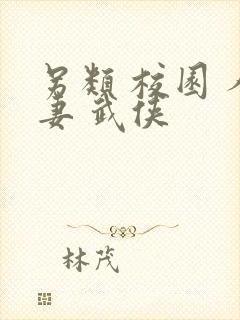 另類 校園
妻 武俠
林茂